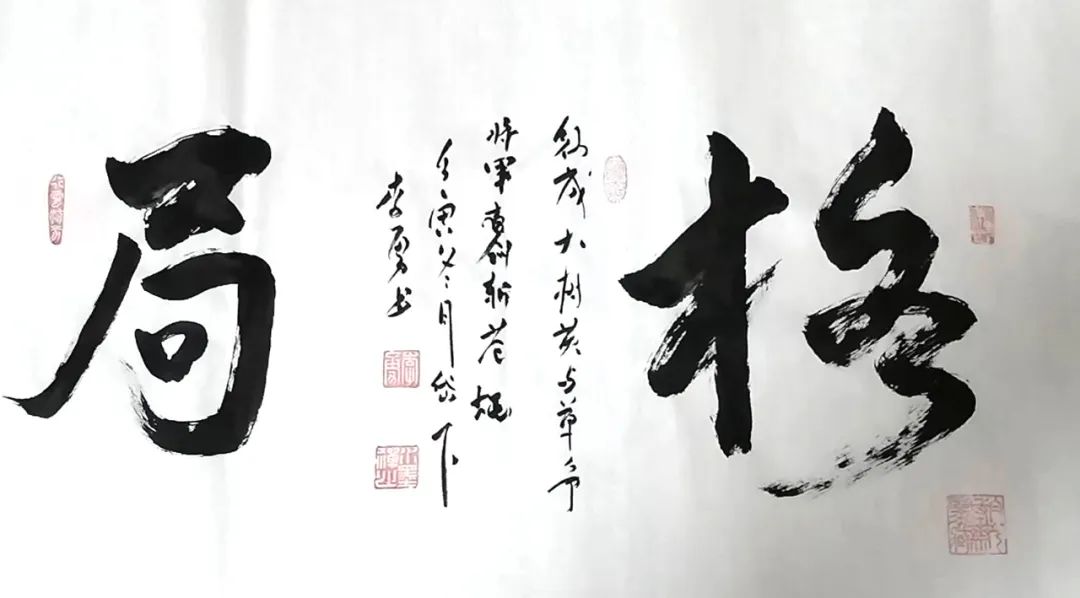 格
欲成大树莫与草争
将军有剑斩苍蝇
壬寅冬月岱下
李勇书
局